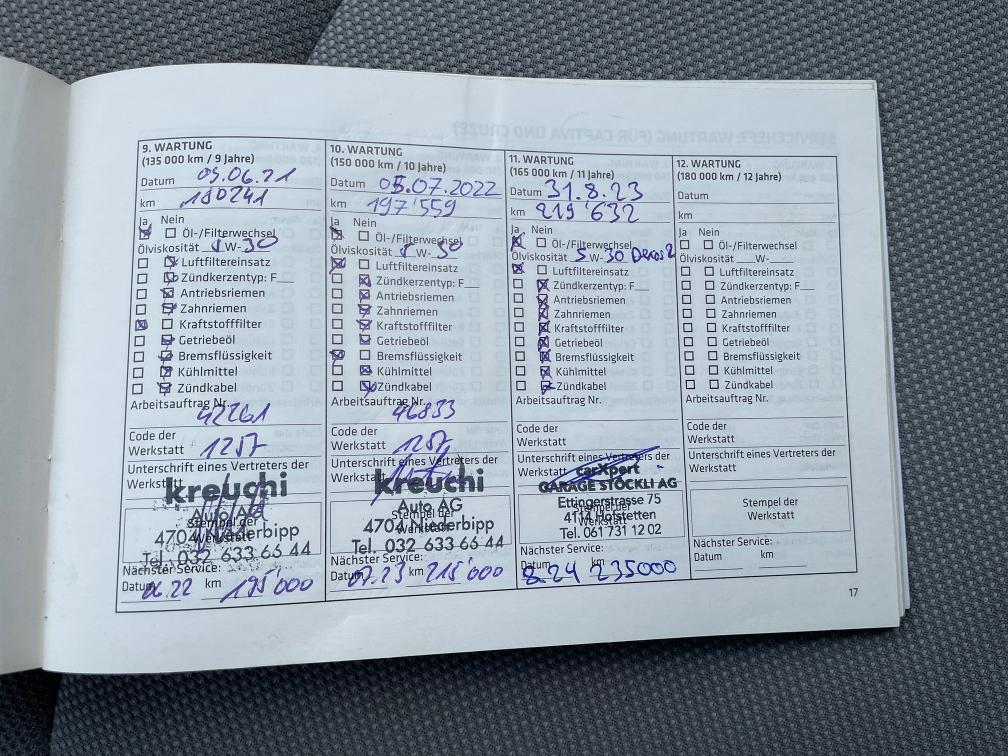 9. WARTUNG
(135 000 km / 9 Jahre)
Datum 09.06.21
km 180241
Ja Nein
Öl-/Filterwechsel
Ölviskosität 5 W-30
Luftfiltereinsatz
Zündkerzentyp: F
Antriebsriemen
Zahnriemen
Kraftstofffilter
Getriebeöl
Bremsflüssigkeit
Kühlmittel
Zündkabel
Arbeitsauftrag Nr.
42261
Code der
Werkstatt 1257
Unterschrift eines Vertreters der
Werkstatt
kreuchi
Auto AG
Stempel der
Werkstatt
4704 Niederbipp
Tel. 032 633 66 44
Nächster Service:
Datum 06.22 km 195'000
10. WARTUNG
(150 000 km / 10 Jahre)
Datum 05.07.2022
km 197'559
Ja Nein
Öl-/Filterwechsel
Ölviskosität 5 W-30
Luftfiltereinsatz
Zündkerzentyp: F
Antriebsriemen
Zahnriemen
Kraftstofffilter
Getriebeöl
Bremsflüssigkeit
Kühlmittel
Zündkabel
Arbeitsauftrag Nr.
46833
Code der
Werkstatt 1257
Unterschrift eines Vertreters der
Werkstatt
kreuchi
Auto AG
Stempel der
Werkstatt
4704 Niederbipp
Tel. 032 633 66 44
Nächster Service:
Datum 07.23 km 215'000
11. WARTUNG
(165 000 km / 11 Jahre)
Datum 31.8.23
km 219'632
Ja Nein
Öl-/Filterwechsel
Ölviskosität 5 W-30 Dexos2
Luftfiltereinsatz
Zündkerzentyp: F
Antriebsriemen
Zahnriemen
Kraftstofffilter
Getriebeöl
Bremsflüssigkeit
Kühlmittel
Zündkabel
Arbeitsauftrag Nr.
Code der
Werkstatt
Unterschrift eines Vertreters der
Werkstatt carXpert
GARAGE STÖCKLI AG
Ettingerstrasse 75
Stempel der
4114 Hofstetten
Werkstatt
Tel. 061 731 12 02
Nächster Service:
Datum km
8.24 235000
12. WARTUNG
(180 000 km / 12 Jahre)
Datum
km
Ja Nein
Öl-/Filterwechsel
Ölviskosität W-
Luftfiltereinsatz
Zündkerzentyp: F
Antriebsriemen
Zahnriemen
Kraftstofffilter
Getriebeöl
Bremsflüssigkeit
Kühlmittel
Zündkabel
Arbeitsauftrag Nr.
Code der
Werkstatt
Unterschrift eines Vertreters der
Werkstatt
Stempel der
Werkstatt
Nächster Service:
Datum km
17